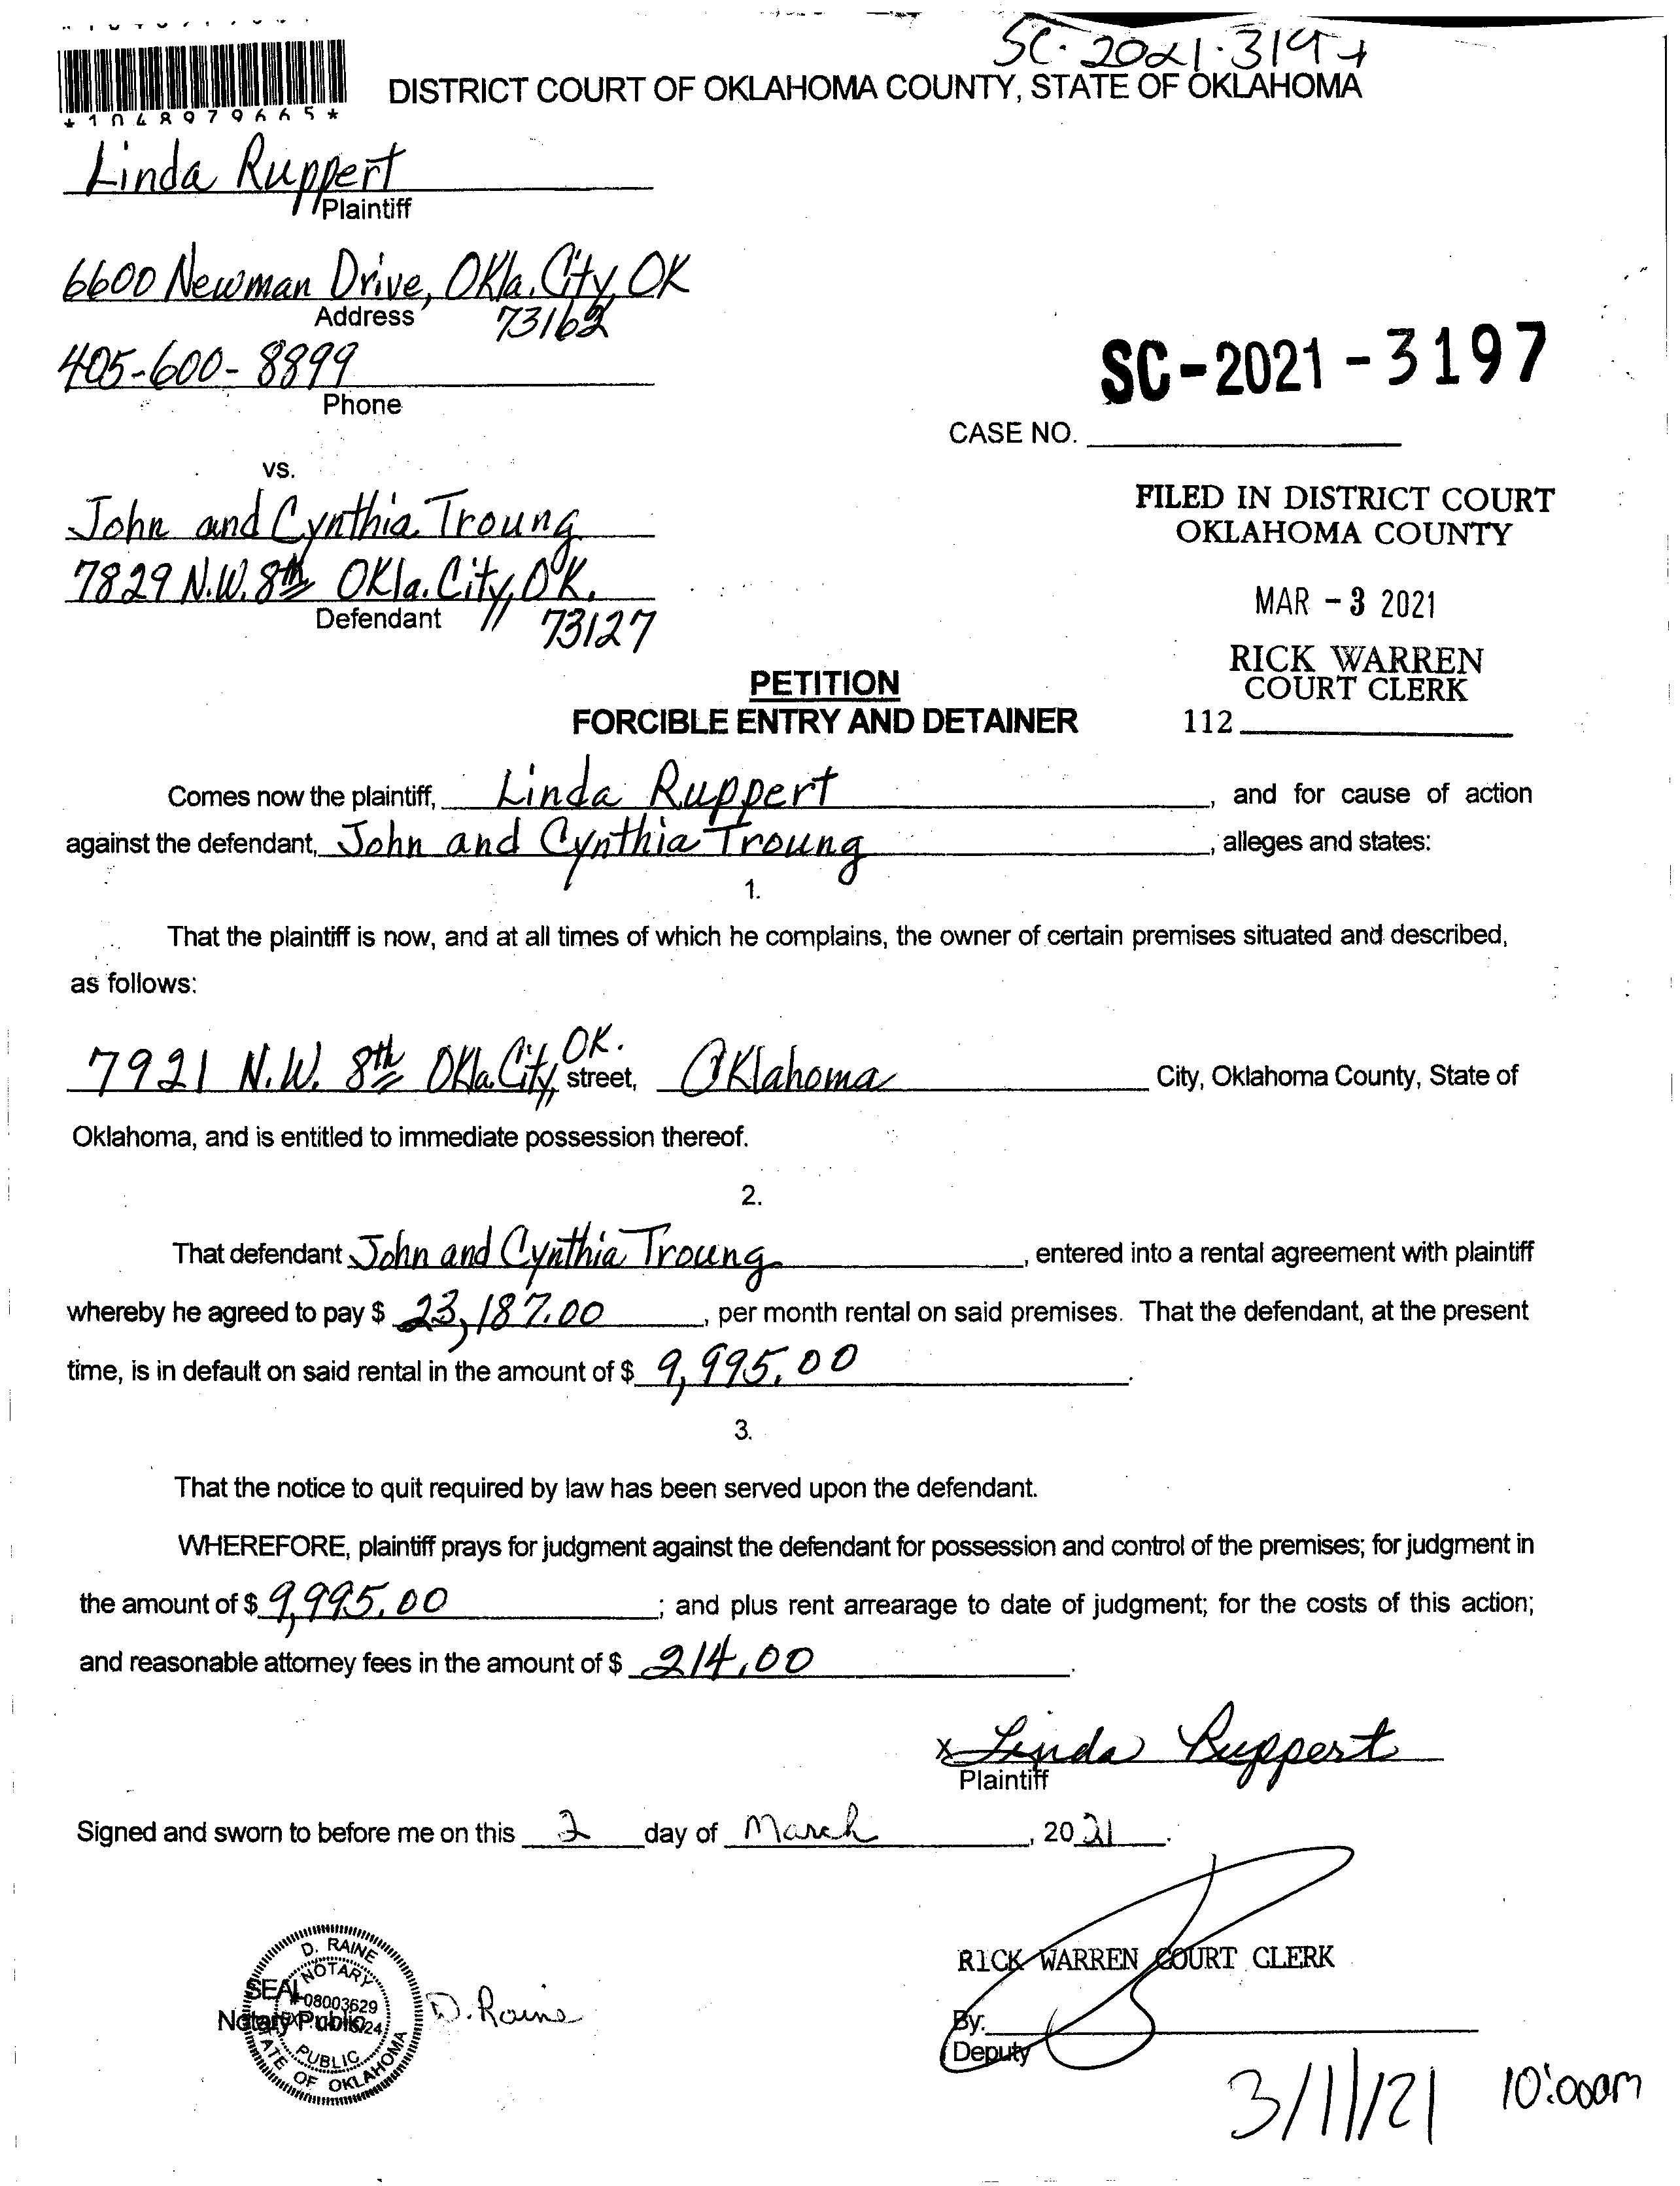 SC-2021-3197
*1048979665*
DISTRICT COURT OF OKLAHOMA COUNTY, STATE OF OKLAHOMA
Linda Ruppert
Plaintiff
6600 Newman Drive, Okla. City, OK
Address 73162
405-600-8899
Phone
SC-2021-3197
CASE NO.
vs.
John and Cynthia Troung
7829 N.W. 8th Okla. City, OK.
Defendant 73127
FILED IN DISTRICT COURT
OKLAHOMA COUNTY
MAR -3 2021
RICK WARREN
COURT CLERK
112
PETITION
FORCIBLE ENTRY AND DETAINER
Comes now the plaintiff, Linda Ruppert, and for cause of action
against the defendant, John and Cynthia Troung, alleges and states:
1.
That the plaintiff is now, and at all times of which he complains, the owner of certain premises situated and described,
as follows:
7921 N.W. 8th Okla. City, OK. street, Oklahoma City, Oklahoma County, State of
Oklahoma, and is entitled to immediate possession thereof.
2.
That defendant John and Cynthia Troung, entered into a rental agreement with plaintiff
whereby he agreed to pay $ 23,187.00, per month rental on said premises. That the defendant, at the present
time, is in default on said rental in the amount of $ 9,995.00.
3.
That the notice to quit required by law has been served upon the defendant.
WHEREFORE, plaintiff prays for judgment against the defendant for possession and control of the premises; for judgment in
the amount of $ 9,995.00; and plus rent arrearage to date of judgment; for the costs of this action;
and reasonable attorney fees in the amount of $ 214.00.
x Linda Ruppert
Plaintiff
Signed and sworn to before me on this 2 day of March, 2021.
D. RAINE
NOTARY
SEAL
# 08003629
Notary Public
PUBLIC
STATE OF OKLAHOMA
D. Raine
RICK WARREN COURT CLERK
By:
Deputy
3/11/21 10:00am